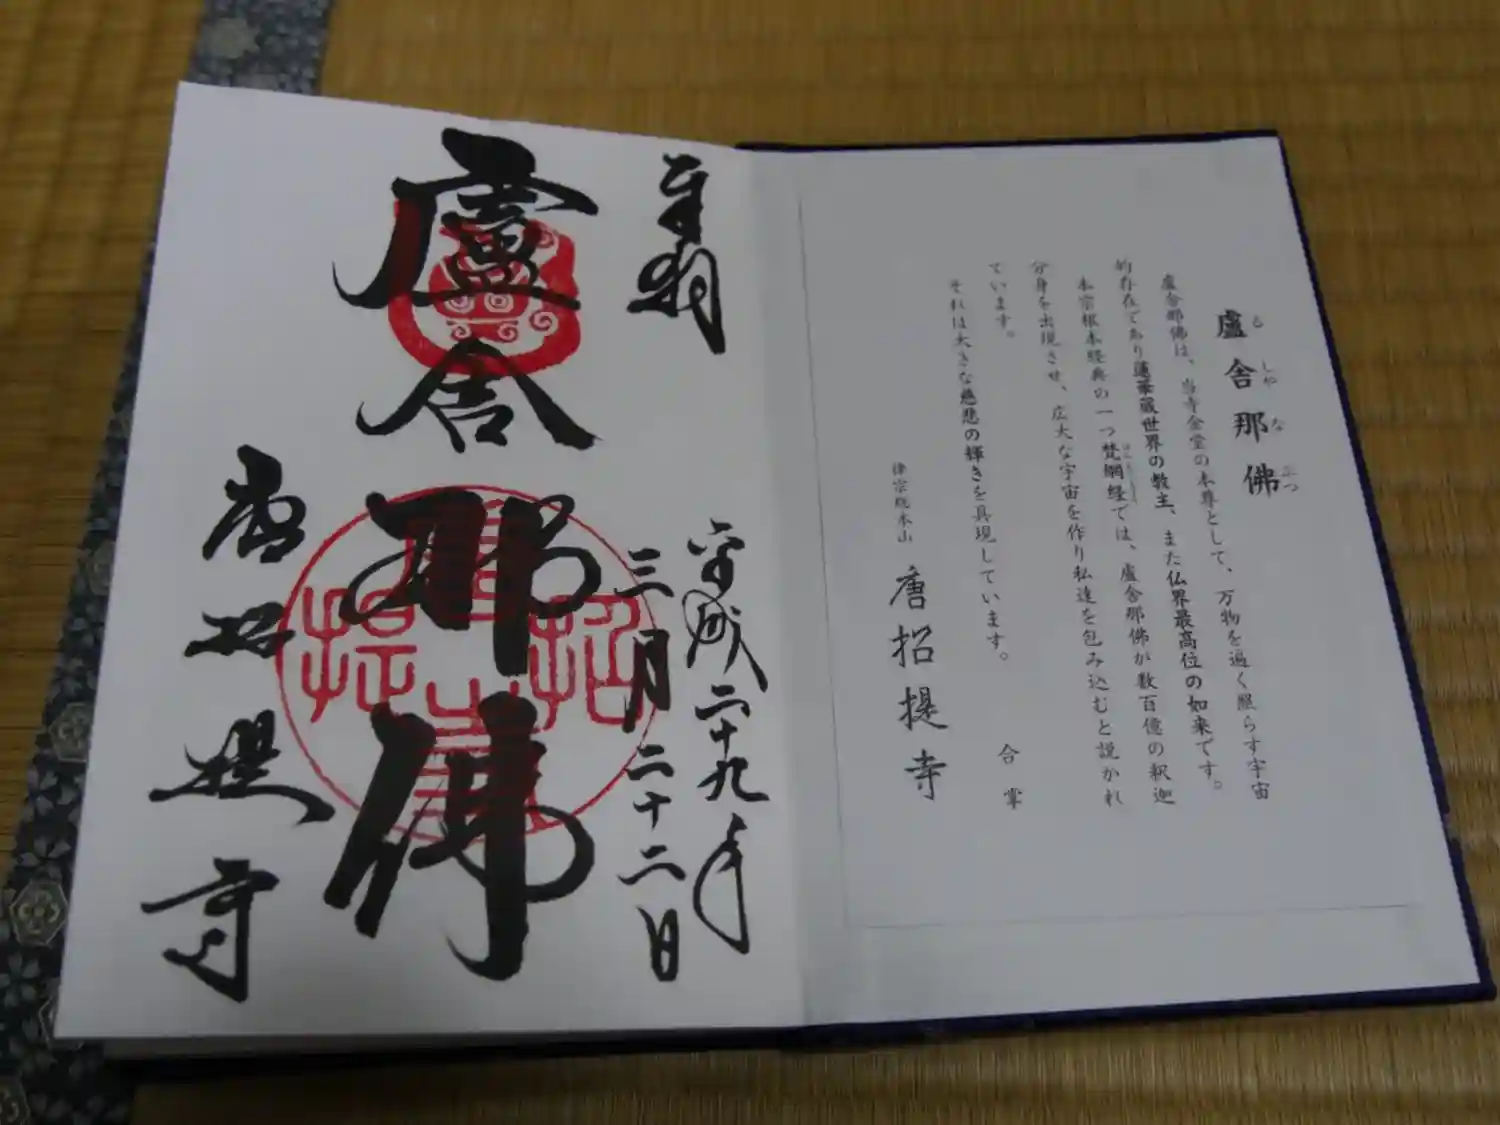 盧舎那佛
るしゃなぶつ
盧舎那佛は、当寺金堂の本尊として、万物を遍く照らす宇宙
的存在であり蓮華蔵世界の教主、また仏界最高位の如来です。
本宗根本経典の一つ梵網経では、盧舎那佛が数百億の釈迦
分身を出現させ、広大な宇宙を作り私達を包み込むと説かれ
ています。
それは大きな慈悲の輝きを具現しています。
合掌
律宗総本山 唐招提寺
奉拝
平成二十九年
三月二十二日
盧舎那佛
唐招提寺